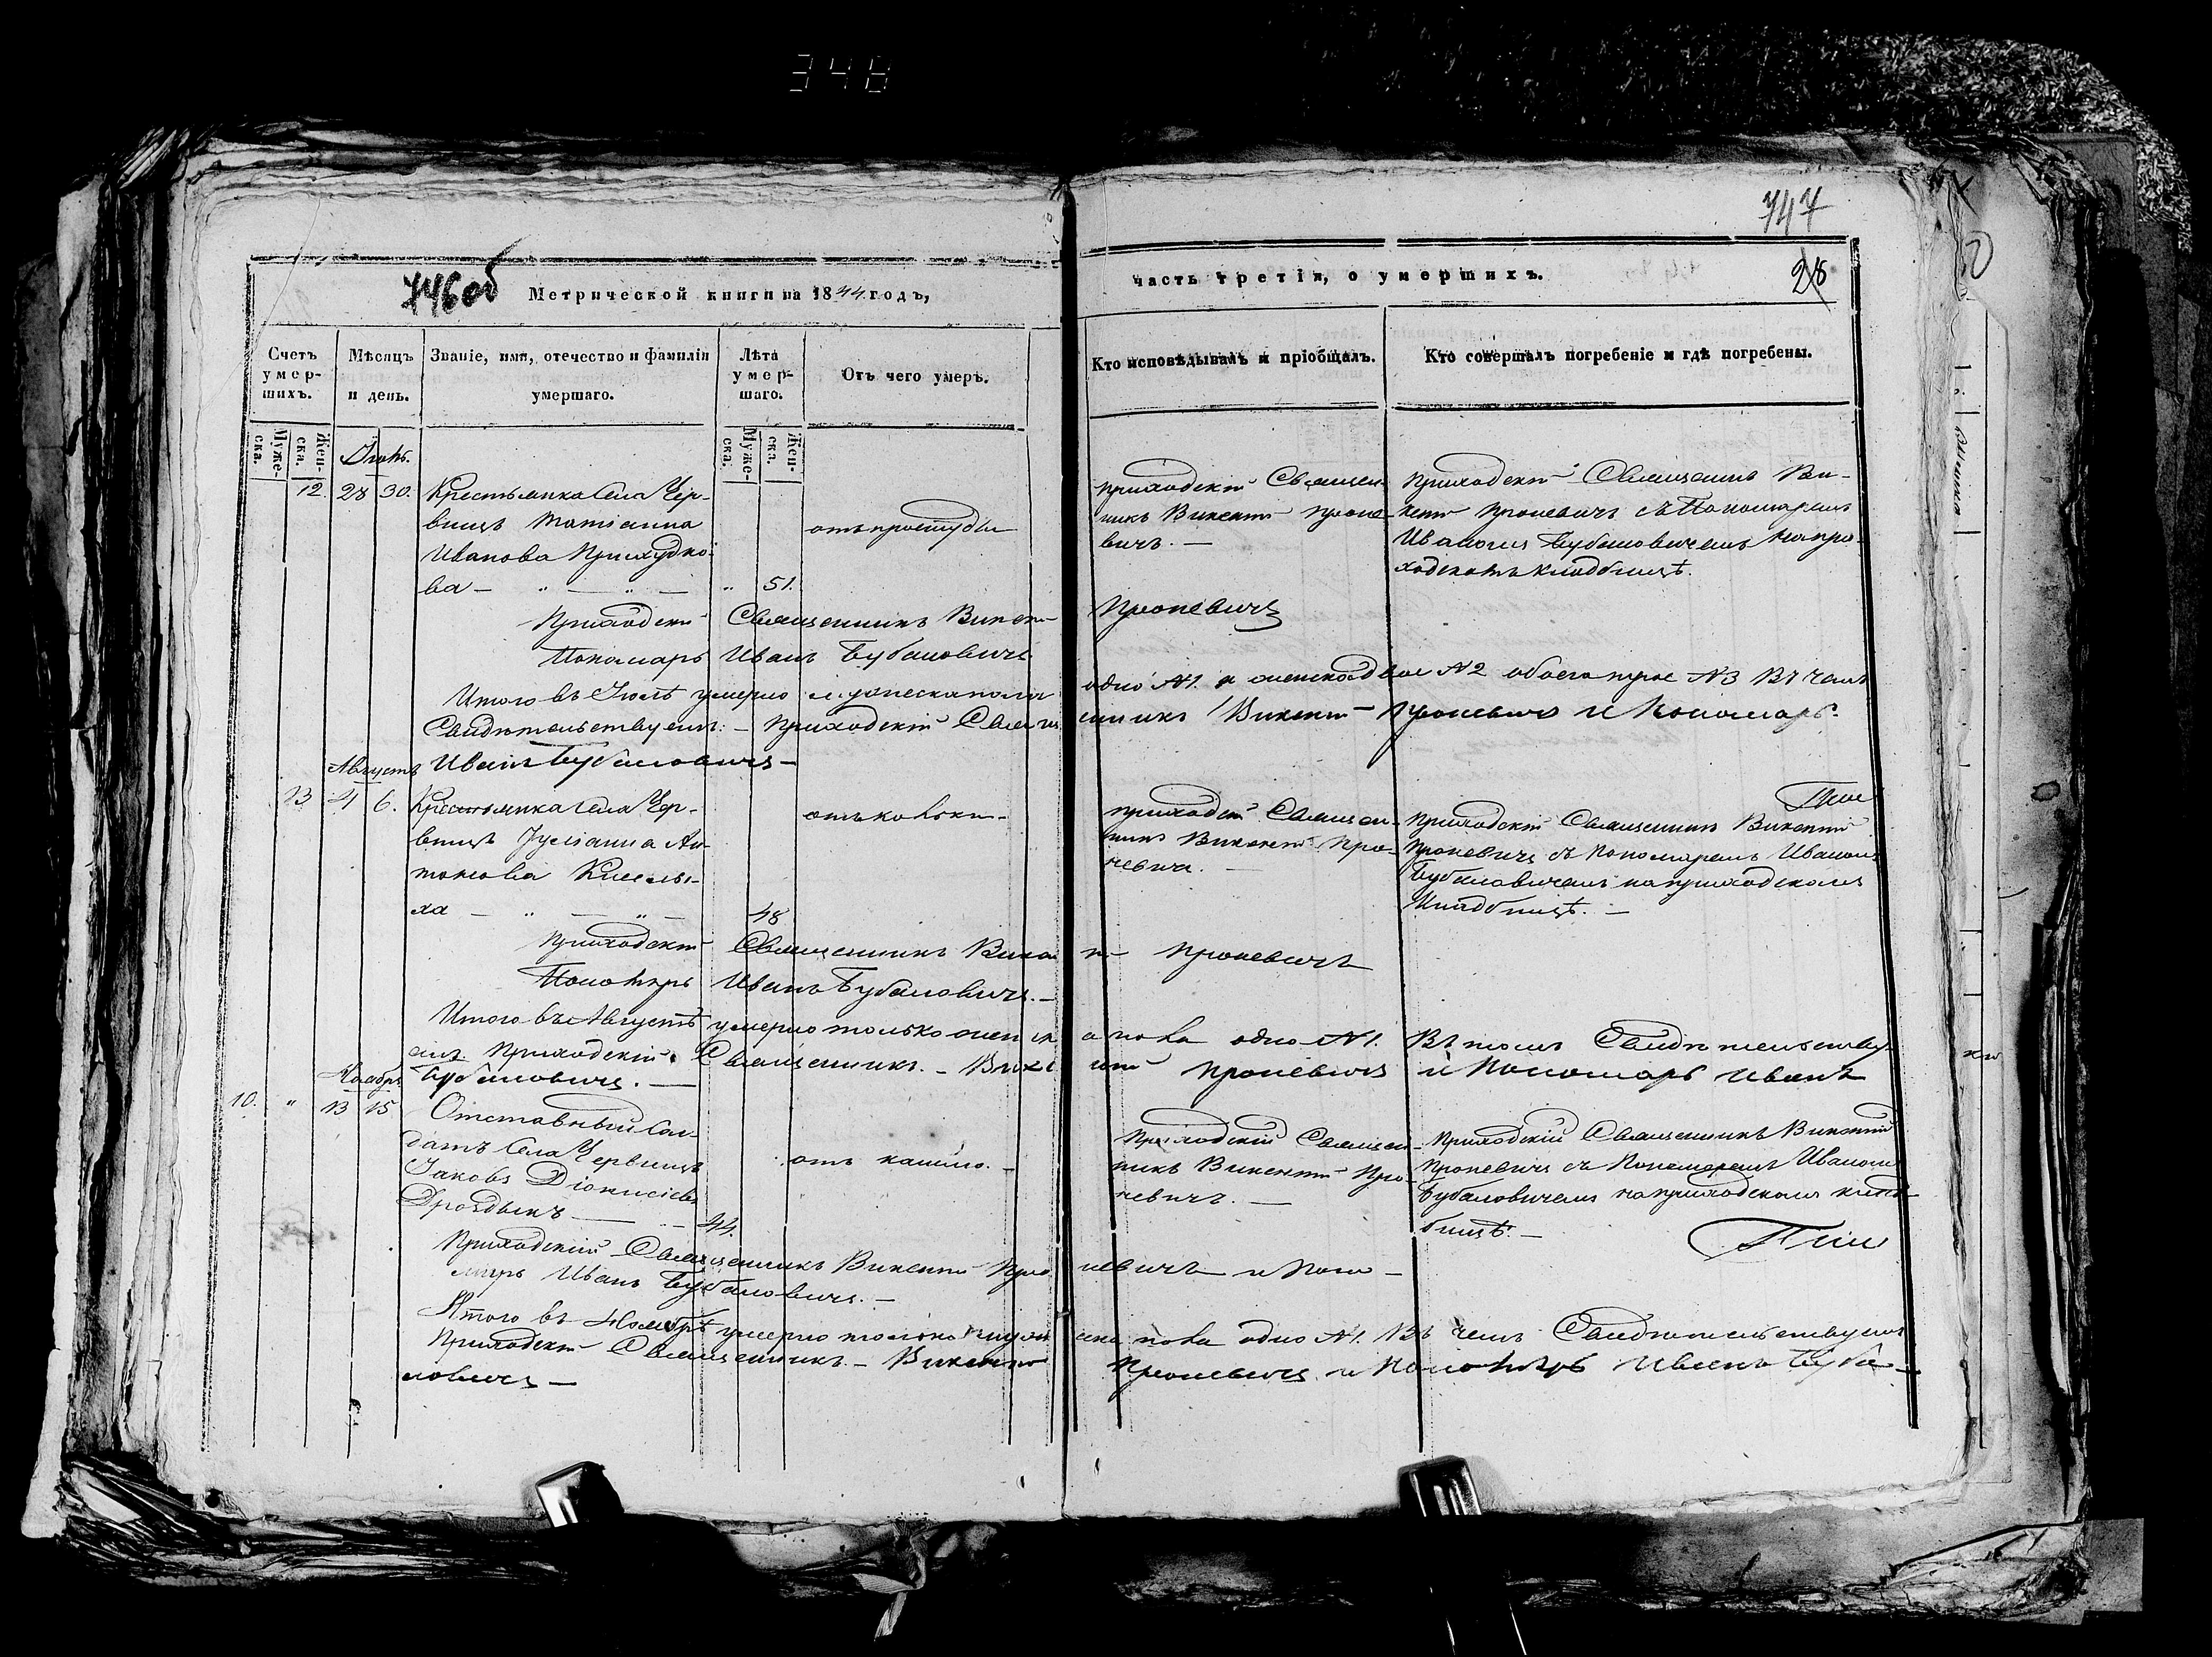 348
747
746об Метрической книги на 1844 годъ,
часть третія, о умершихъ.
28
Счетъ умер-шихъ.
Мѣсяцъ и день.
Званіе, имя, отечество и фамилія умершаго.
Лѣта умер-шаго.
Отъ чего умеръ.
Кто исповѣдывалъ и пріобщалъ.
Кто совершалъ погребеніе и гдѣ погребены.
Муже-ска.
Жен-ска.
Муже-ска.
Жен-ска.
12. 28 30. Крестьянка Села Чер-
вищъ Татіанна
Иванова Приходко-
ва — „ — „ — „ 51.
отъ простуды
Приходскій Священ-
никъ Викентій Проне-
вичъ. —
Приходскій Священникъ Ви-
кентій Проневичъ съ Пономаремъ
Иваномъ Бубановичемъ на при-
ходскомъ кладбищѣ.
Приходскій Священникъ Викентій Проневичъ
Пономарь Иванъ Бубановичъ
Итого въ Іюлѣ умерло мужеска пола одно №1. а женска двое №2 обоего трое №3 Въ чемъ
Свидѣтельствуемъ: — Приходскій Священникъ Викентій Проневичъ и Пономарь
Иванъ Бубановичъ —
Августъ
13 4 6. Крестьянка Села Чер-
вищъ Іуліанна Ан-
тонова
ха — „ — „ — 48
Приходскій Священ-
никъ Викентій Про-
невичъ. —
Приходскій Священникъ Викентій
Проневичъ съ Пономаремъ Иваномъ
Бубановичемъ на приходскомъ
кладбищѣ. —
Приходскій Священникъ Викентій Проневичъ
Пономарь Иванъ Бубановичъ. —
Итого въ Августѣ умерло только женска пола одно №1. Въ томъ Свидѣтельству-
емъ. Приходскій Священникъ. — Викентій Проневичъ и Пономарь Иванъ
Бубановичъ. —
Ноябрь
10. „ 13 15 Отставный Сол-
датъ Села Червищъ
Іаковъ Діонисіевъ
Дроздыкъ — — 44.
отъ кашлю. —
Приходскій Священ-
никъ Викентій Про-
невичъ. —
Приходскій Священникъ Викентій
Проневичъ съ Пономаремъ Иваномъ
Бубановичемъ на приходскомъ клад-
бищѣ. —
Приходскій Священникъ Викентій Проневичъ и Поно-
марь Иванъ Бубановичъ. —
Итого въ Ноябрѣ умерло только мужеска пола одно №1. Въ чемъ Свидѣтельствуемъ
Приходскій Священникъ. — Викентій Проневичъ и Пономарь Иванъ Буба-
новичъ —